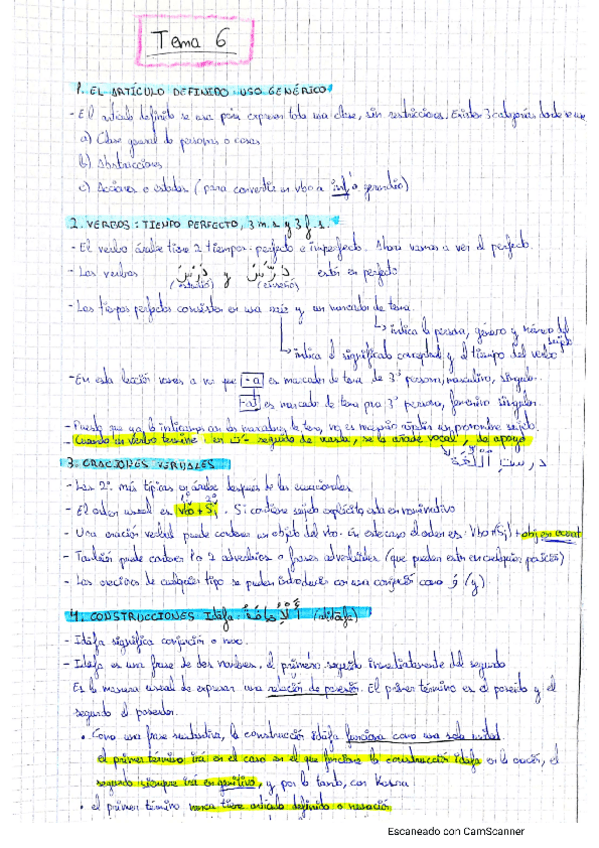 Tema 6
1. EL ARTÍCULO DEFINIDO: USO GENÉRICO
- El artículo definido se usa para expresar toda una clase, sin restricciones. Existen 3 categorías donde se usa
a) Clase general de personas o cosas
b) Abstracciones
c) Acciones o estados (para convertir un vbo a inf/a gerundio)
2. VERBOS: TIEMPO PERFECTO, 3 m.s. y 3 f.s.
- El verbo árabe tiene 2 tiempos: perfecto e imperfecto. Ahora vamos a ver el perfecto.
- Los verbos دَرَسَ y دَرَّسَ están en perfecto
(estudió) (enseñó)
- Los tiempos perfectos consisten en una raíz y un marcador de tema
indica la persona, género y número del sujeto
indica el significado conceptual y el tiempo del verbo
- En esta lección vamos a ver que -a es marcador de tema de 3ª persona, masculino, singular.
-at es marcador de tema para 3ª persona, femenino singular.
- Puesto que ya lo indicamos con los marcadores de tema, no es necesario añadir un pronombre sujeto.
- Cuando un verbo termine en تْ- seguido de wasla, se le añade vocal i de apoyo
درستِ ٱللُّغَةَ
3. ORACIONES VERBALES
- Las 2ª más típicas en árabe después de las ecuacionales
- El orden usual es Vbo + Sj. Si contiene sujeto explícito, está en nominativo
- Una oración verbal puede contener un objeto del vbo. En este caso el orden es: Vbo + (Sj) + obj en acusat
- También puede contener 1 o 2 adverbios o frases adverbiales (que pueden estar en cualquier posición)
- Las oraciones de cualquier tipo se pueden introducir con una conjunción como وَ (y)
4. CONSTRUCCIONES Idāfa: أَلْإِضَافَةُ (alidāfa)
- Idāfa significa conjunción o nexo.
- Idāfa es una frase de dos nombres, el primero seguido inmediatamente del segundo
Es la manera usual de expresar una relación de posesión. El primer término es el poseído y el
segundo el poseedor.
• Como una frase sustantiva, la construcción idāfa funciona como una sola unidad.
el primer término irá en el caso en el que funcione la construcción idāfa en la oración, el
segundo siempre irá en genitivo, y por lo tanto, con kasra.
• el primer término nunca tiene artículo definido o nunación
Escaneado con CamScanner